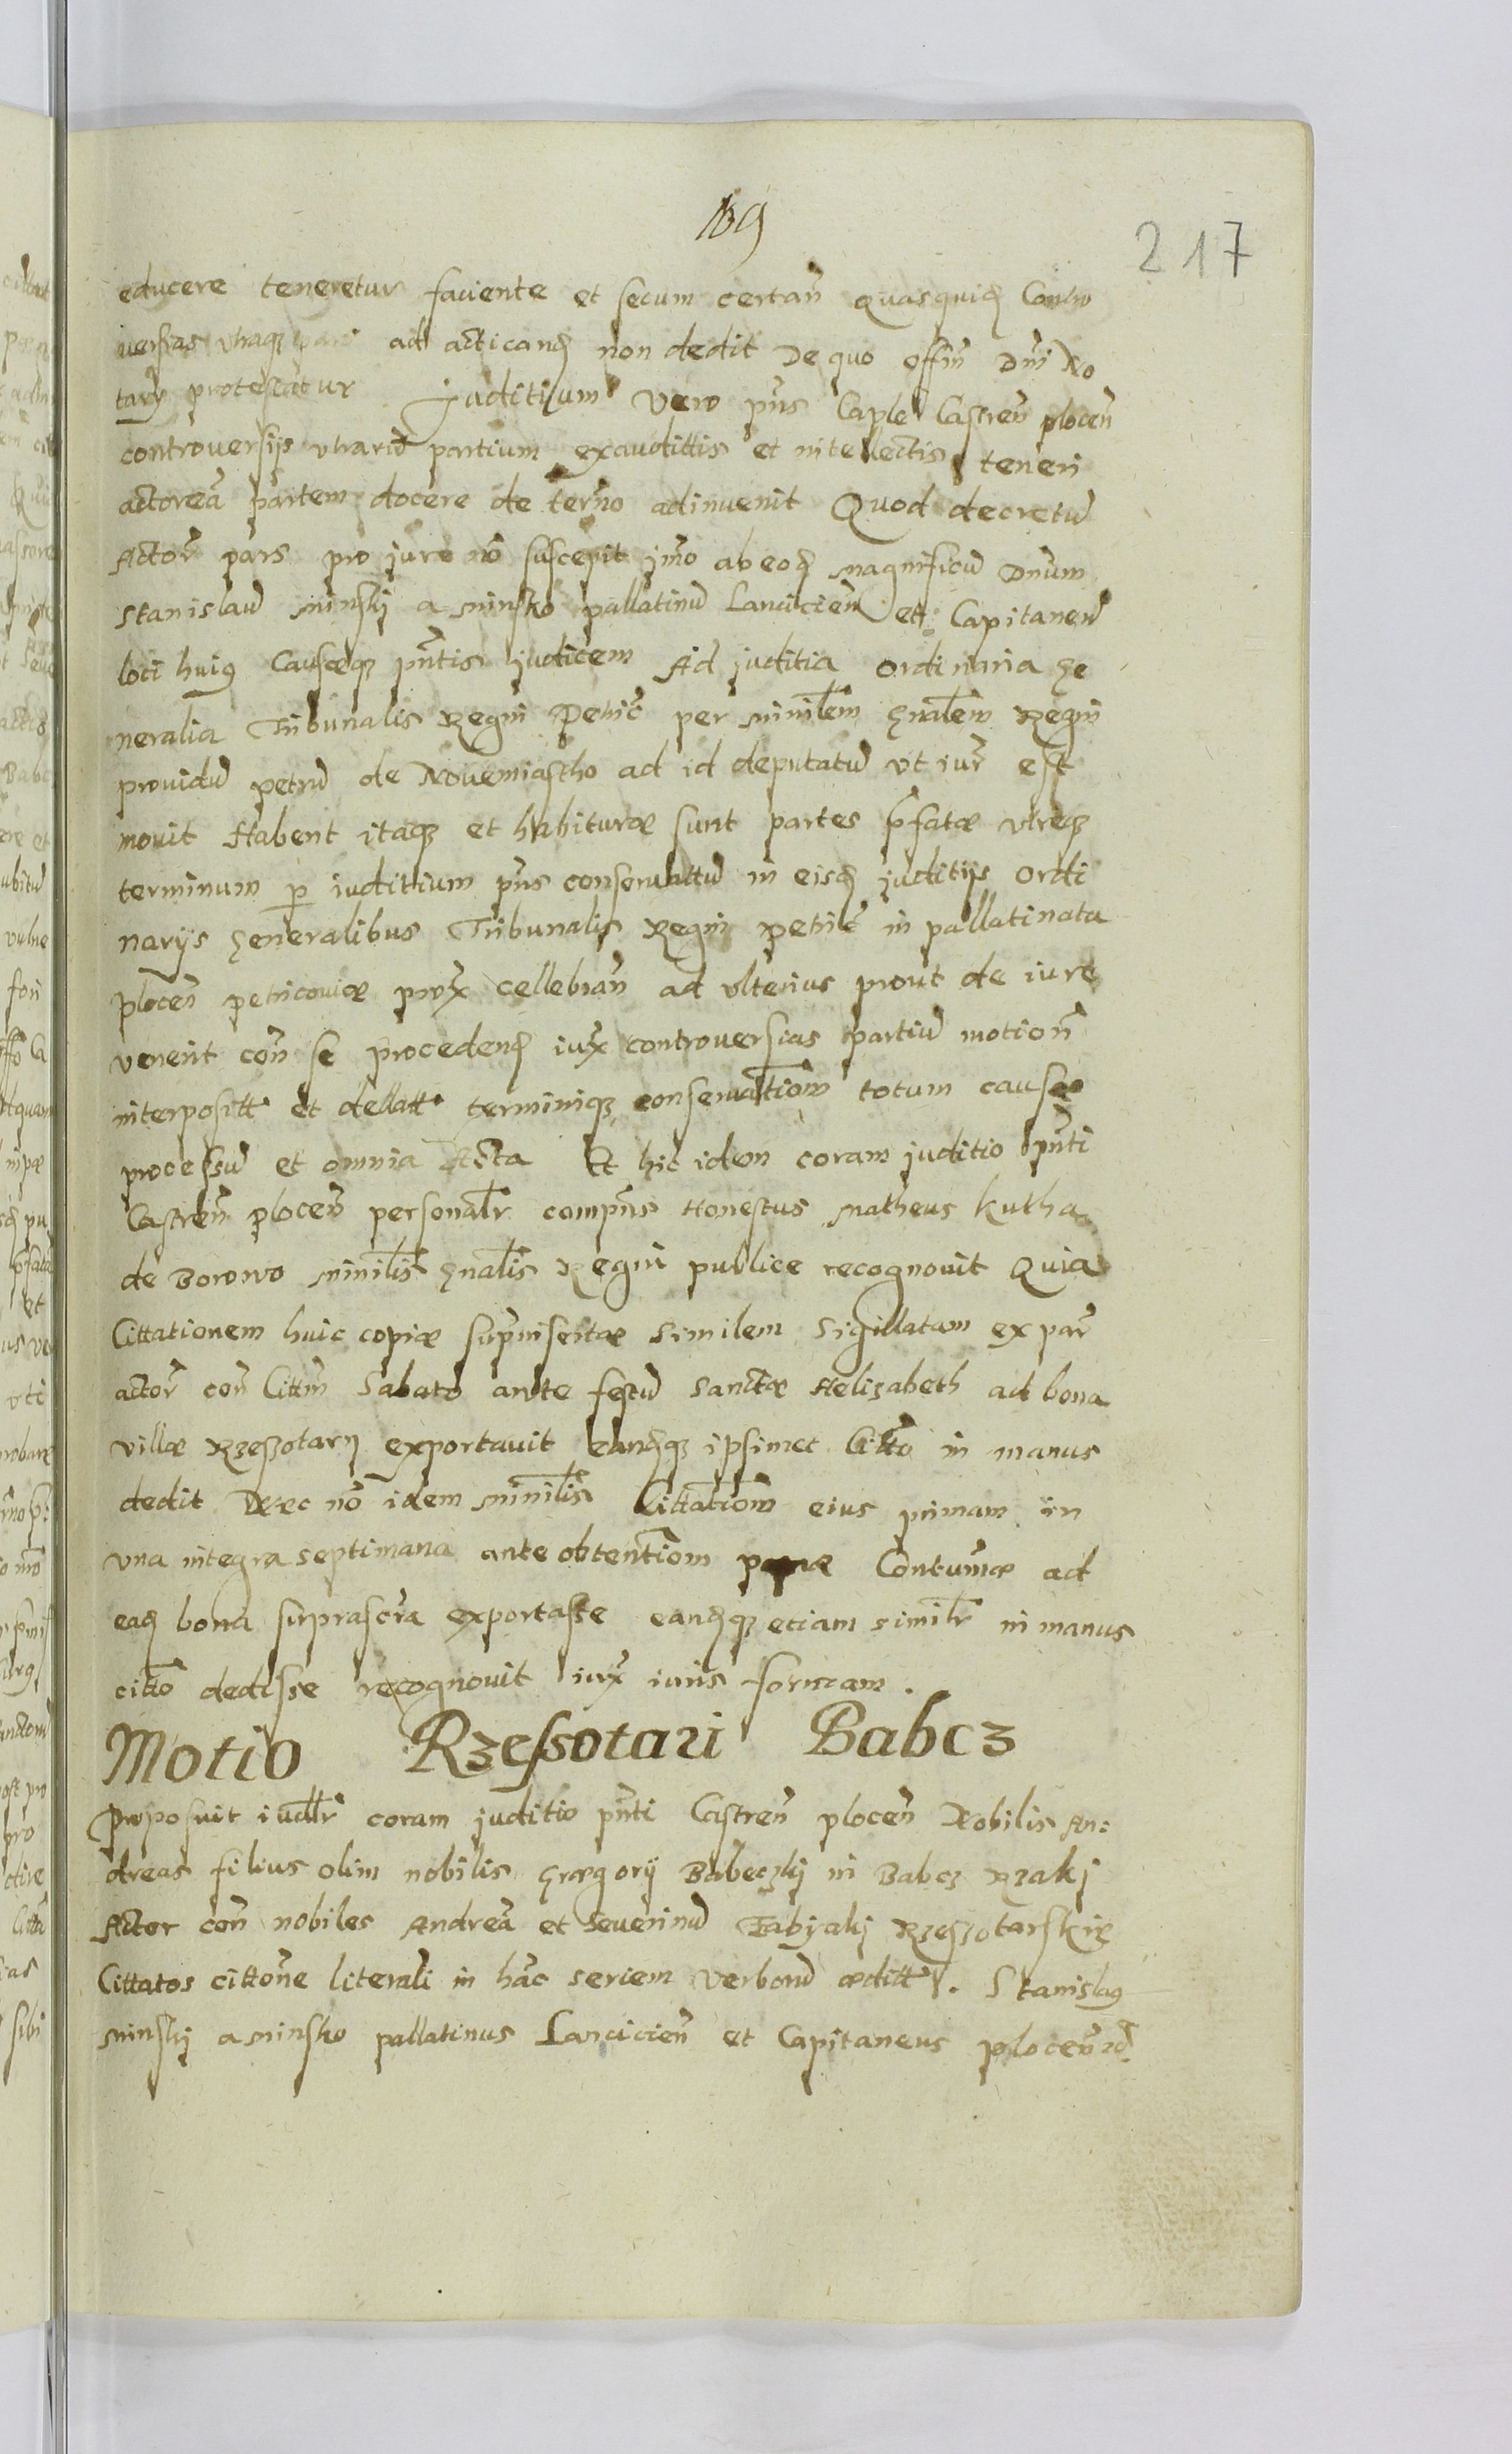 109
217
educere teneretur faciente et secum certan̄ Quasquid Contro
uersias vtraqz pars ad acticand non dedit De quo offm̄ Dnī No
tarij protestatur Juditium vero pn̄s Caple Castren̄ plocen̄
controuersijs vtrarū partium exauditis et intellectis teneri
actoreā partem docere de terno adinuenit Quod decretū
Actor̄ pars pro jure nō suscepit jmo ab eod magnificū Dnum
Stanislaū minskj a minsko pallatinū Lancicien̄ et Capitaneū
loci huig Causæqz pn̄tis judicem Ad juditia ordinaria ge
neralia Tribunalis Regni Petric̄ per minilem gnalem Regni
prouidū petrū de Nouemiastho ad id deputatū vt iur̄ est
mouit Habent itaqz et habituræ sunt partes p̄fatæ vtreqz
terminum p iuditium pn̄s conseruattū in eisd juditijs ordi
narijs generalibus Tribunalis Regni petric̄ in pallatinatu
plocen̄ petricouiæ prox cellebran̄ ad vlterius prout de iure
venerit con̄ se procedend iux controuersias partiū motion̄
interpositt et dellatt terminiqz conseruationem totum causæ
processū et omnia Acta Et hic idem coram juditio pn̄ti
Castren̄ plocen̄ personalr̄ compn̄s Honestus Matheus kutha
de Borowo minilis gnalis Regni publice recognouit Quia
Cittationem huic copiæ supr̄insertæ similem Sigillatam ex par̄
actor̄ con̄ Cittm̄ Sabato ante festū Sanctæ Helisabeth ad bona
villæ Rzeszotary exportauit eandqz ipsimet Citto in manus
dedit Nec nō idem minilis Cittationem eius primam in
vna integra septimana ante obtentiom pænæ Contumæ ad
ead bona suprascr̄a exportasse eandqz etiam similr̄ in manus
citto dedisse recognouit iux iuris formam.
Motio Rzessotari Babcz
Proposuit iudlr̄ coram juditio pn̄ti Castren̄ plocen̄ Nobilis An=
dreas filius olim nobilis Grægorij Babeczkj in Babcz Rzakj
Actor con̄ nobiles Andreā et Seuerinū Fabijakj Rzeszotarskie
Cittatos cittōne literali in hāc seriem verborū æditt. Stanislag
minskj a minsko pallatinus Lancicien̄ et Capitaneus plocen̄